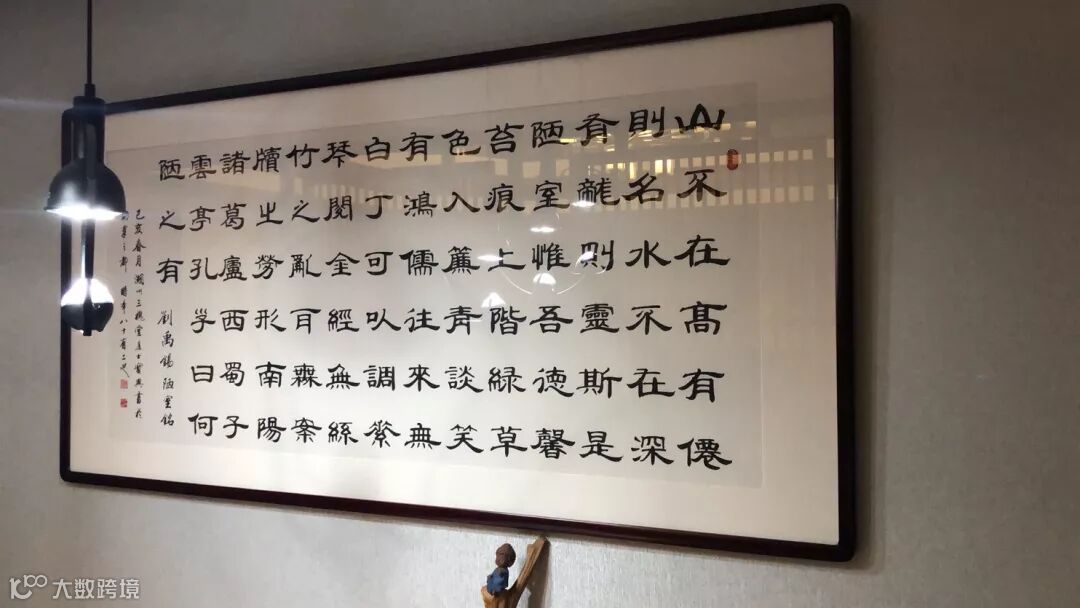 山不在高有僊
則名水不在深
有龍則靈斯是
陋室惟吾德馨
苔痕上階緑草
色入簾青談笑
有鴻儒往來無
白丁可以調素
琴閱金經無絲
竹之亂耳無案
牘之勞形南陽
諸葛廬西蜀子
雲亭孔子曰何
陋之有
劉禹錫陋室銘
己亥春月湖州三槐堂
之都時年八十有二
大数跨境